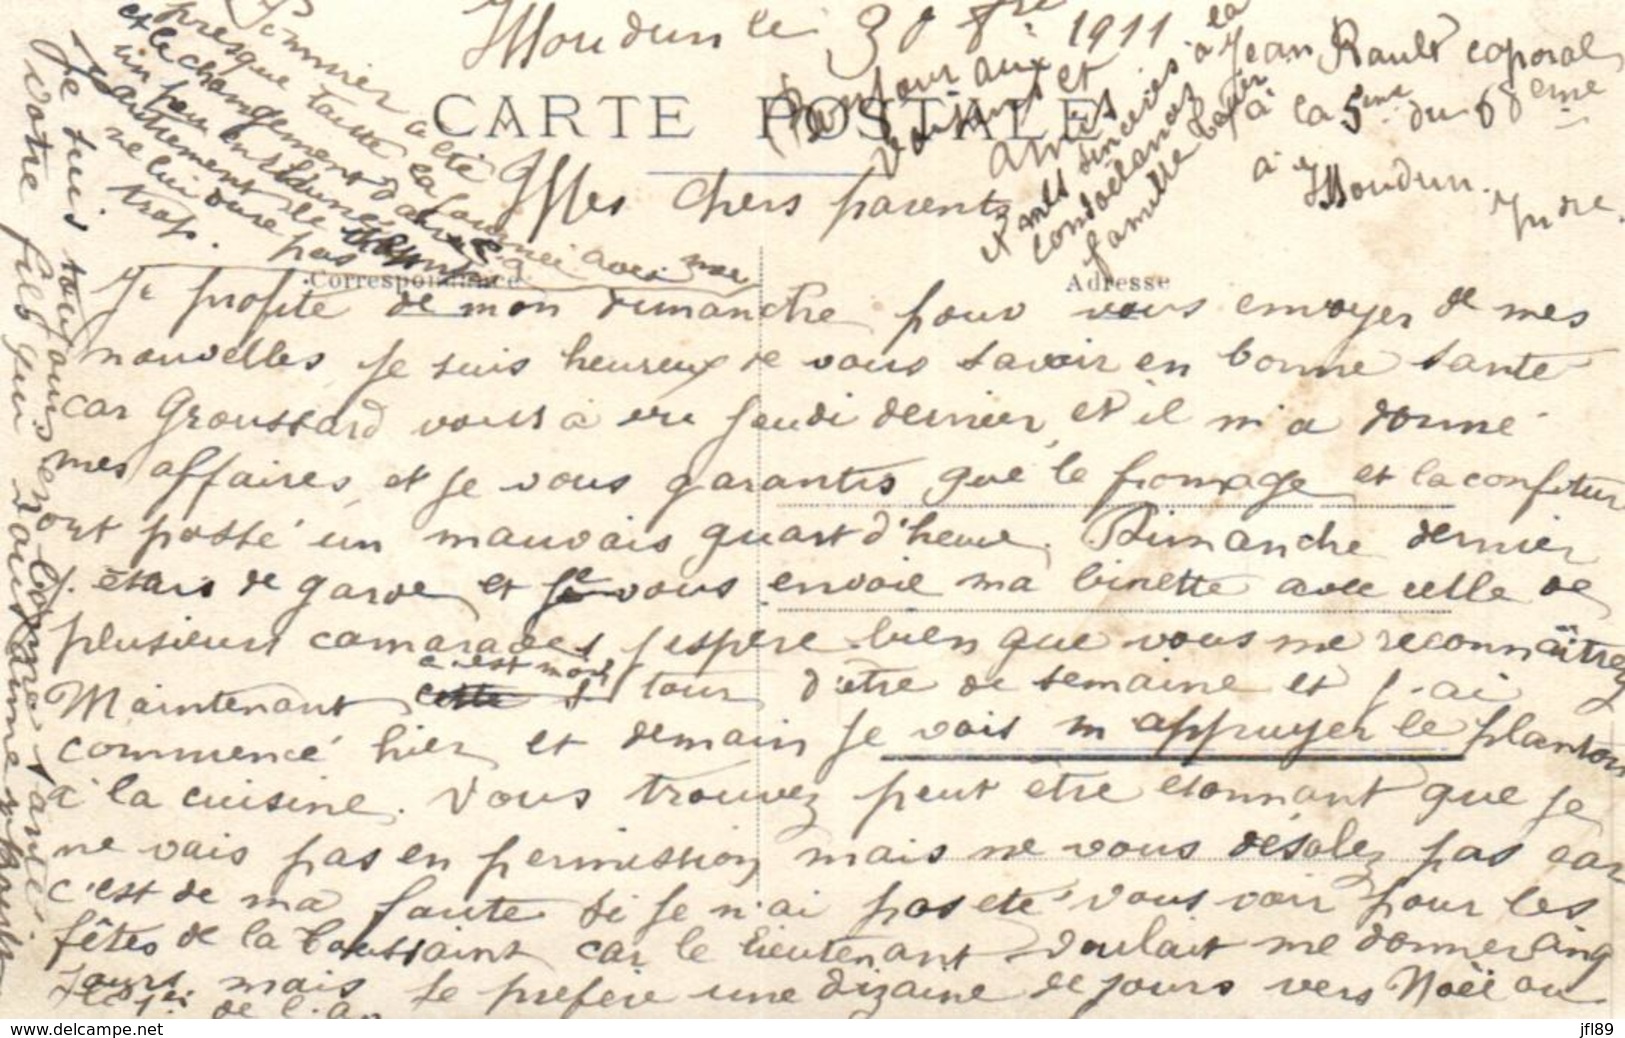 Issoudun le 30 8bre 1911
CARTE POSTALE
Mes chers parents
Correspondance
Adresse
Je profite de mon dimanche pour vous envoyer de mes
nouvelles je suis heureux de vous savoir en bonne santé
car Groussard vous à vu jeudi dernier et il m'a donné
mes affaires, et je vous garantis que le fromage et la confiture
ont passé un mauvais quart d'heure. Dimanche dernier
j'étais de garde et je vous envoie ma binette avec celle de
plusieurs camarades j'espère bien que vous me reconnaîtrez
Maintenant c'est mon tour d'être de semaine et j'ai
commencé hier et demain je vais m'appuyer le planton
à la cuisine. Vous trouvez peut être étonnant que je
ne vais pas en permission, mais ne vous désolez pas car
c'est de ma faute si je n'ai pas été vous voir pour les
fêtes de la Toussaint car le lieutenant voulait me donner cinq
jours mais je préfère une dizaine de jours vers Noël ou
le 1er de l'an
Jean Rault caporal
à la 5me du 68eme
à Issoudun. Indre.
Bonjour aux
voisins et
amis
et mes sincères à la
condoléances
famille
Pommier a été
presque toute la journée avec moi
et le changement
un peu
autrement le
ne lui dure pas
trop.
Je suis toujours en bonne santé
votre fils qui vous aime